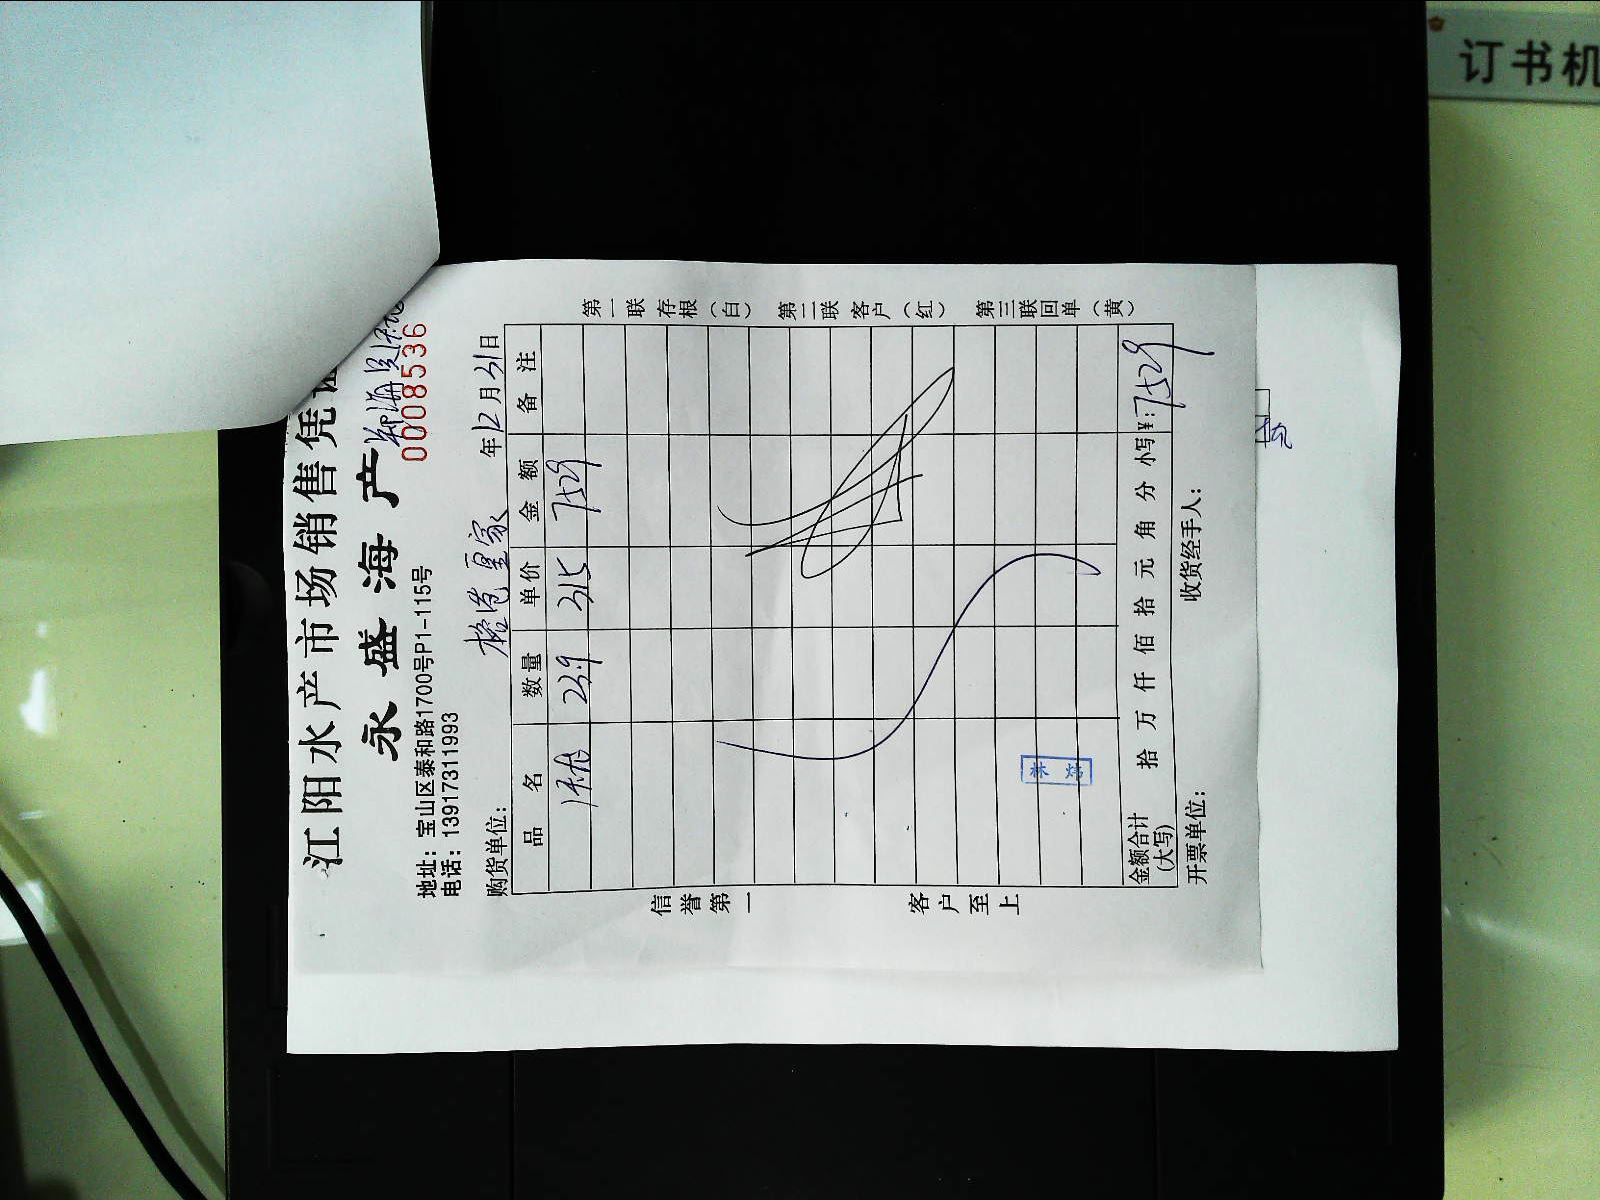 订书机
江阳水产市场销售凭
永盛海产
0008536
地址：宝山区泰和路1700号P1-115号
电话：13917311993
购货单位：
年12月31日
品名 数量 单价 金额 备注
239 315 7529
林
金额合计(大写) 拾 万 仟 佰 拾 元 角 分 小写¥：7529
开票单位： 收货经手人：
信誉第一 客户至上
第一联存根（白） 第二联客户（红） 第三联回单（黄）